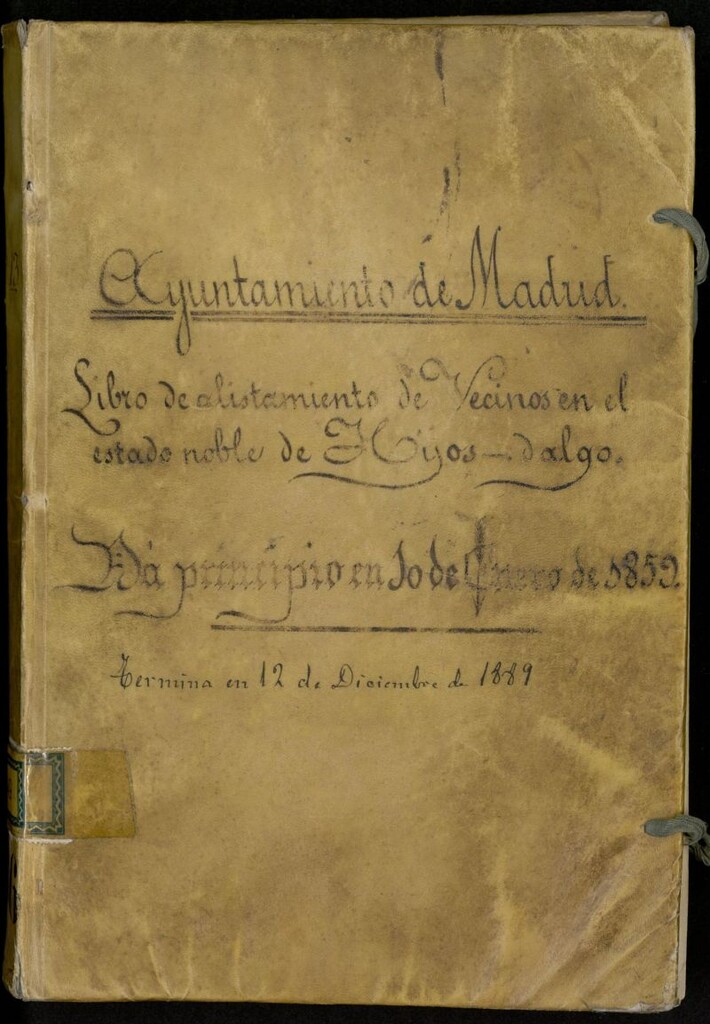 Ayuntamiento de Madrid.
Libro de alistamiento de Vecinos en el
estado noble de Hijos-dalgo.
Dá principio en 10 de Enero de 1859.
Termina en 12 de Diciembre de 1889